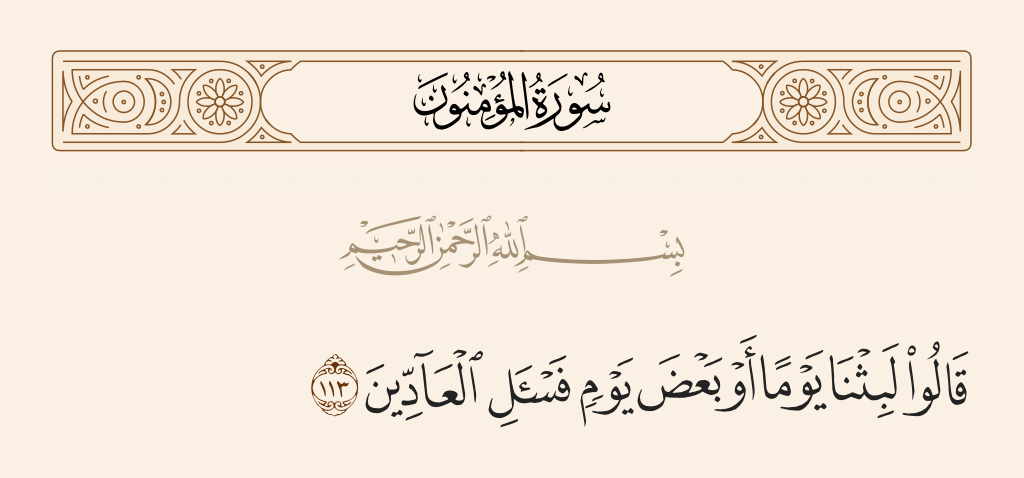 سُورَةُ المُؤْمِنُونَ
بِسْمِ ٱللَّهِ ٱلرَّحْمَٰنِ ٱلرَّحِيمِ
قَالُوا۟ لَبِثْنَا يَوْمًا أَوْ بَعْضَ يَوْمٍ فَسْـَٔلِ ٱلْعَآدِّينَ ١١٣